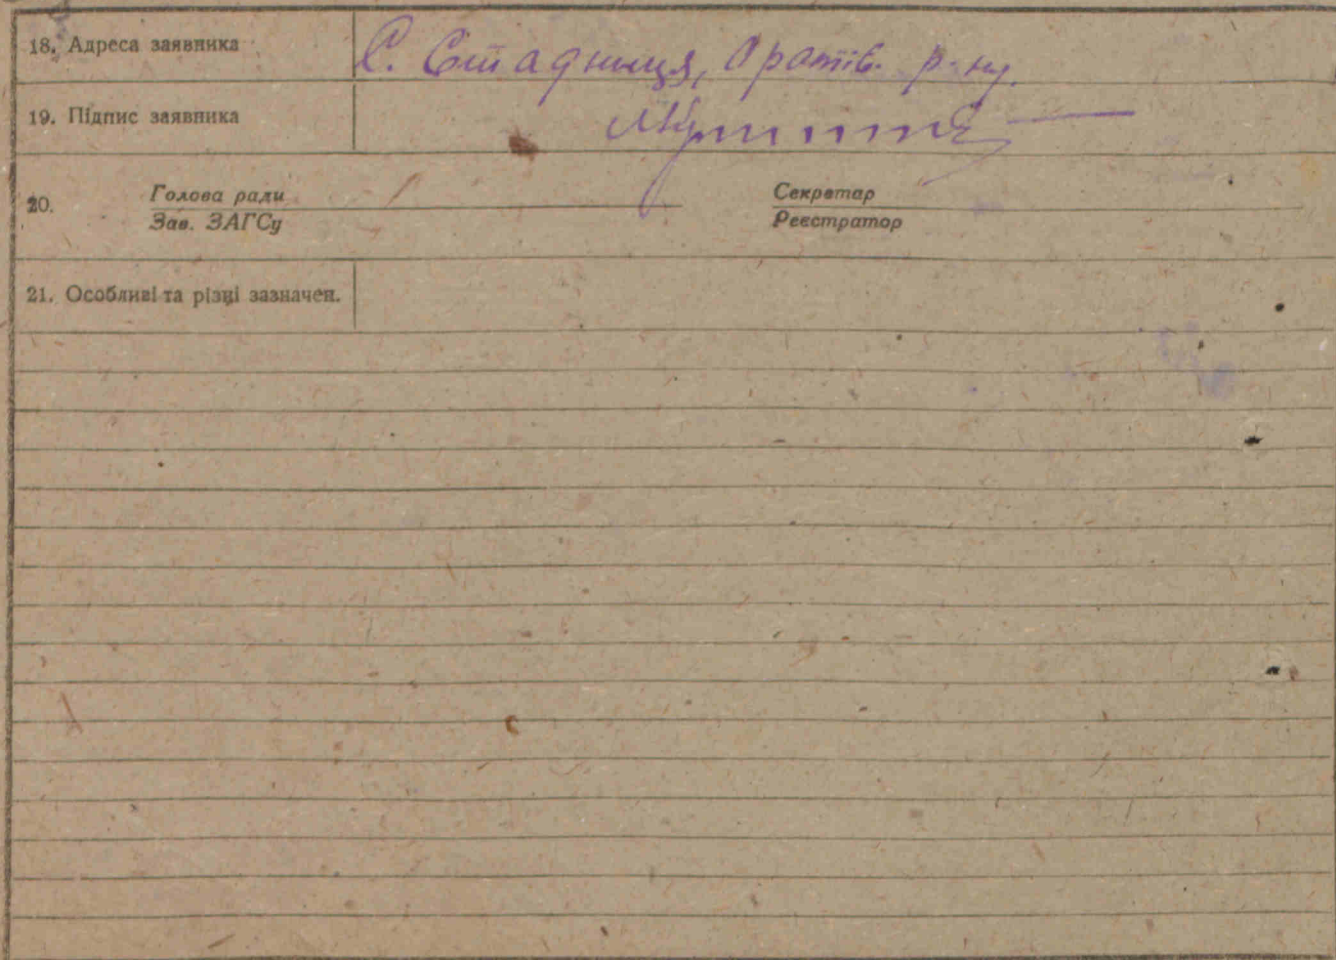 18. Адреса заявника С. Стадниця, Оратів. р-ну.
19. Підпис заявника
20. Голова ради Секретар
Зав. ЗАГСу Реєстратор
21. Особливі та різні зазначен.